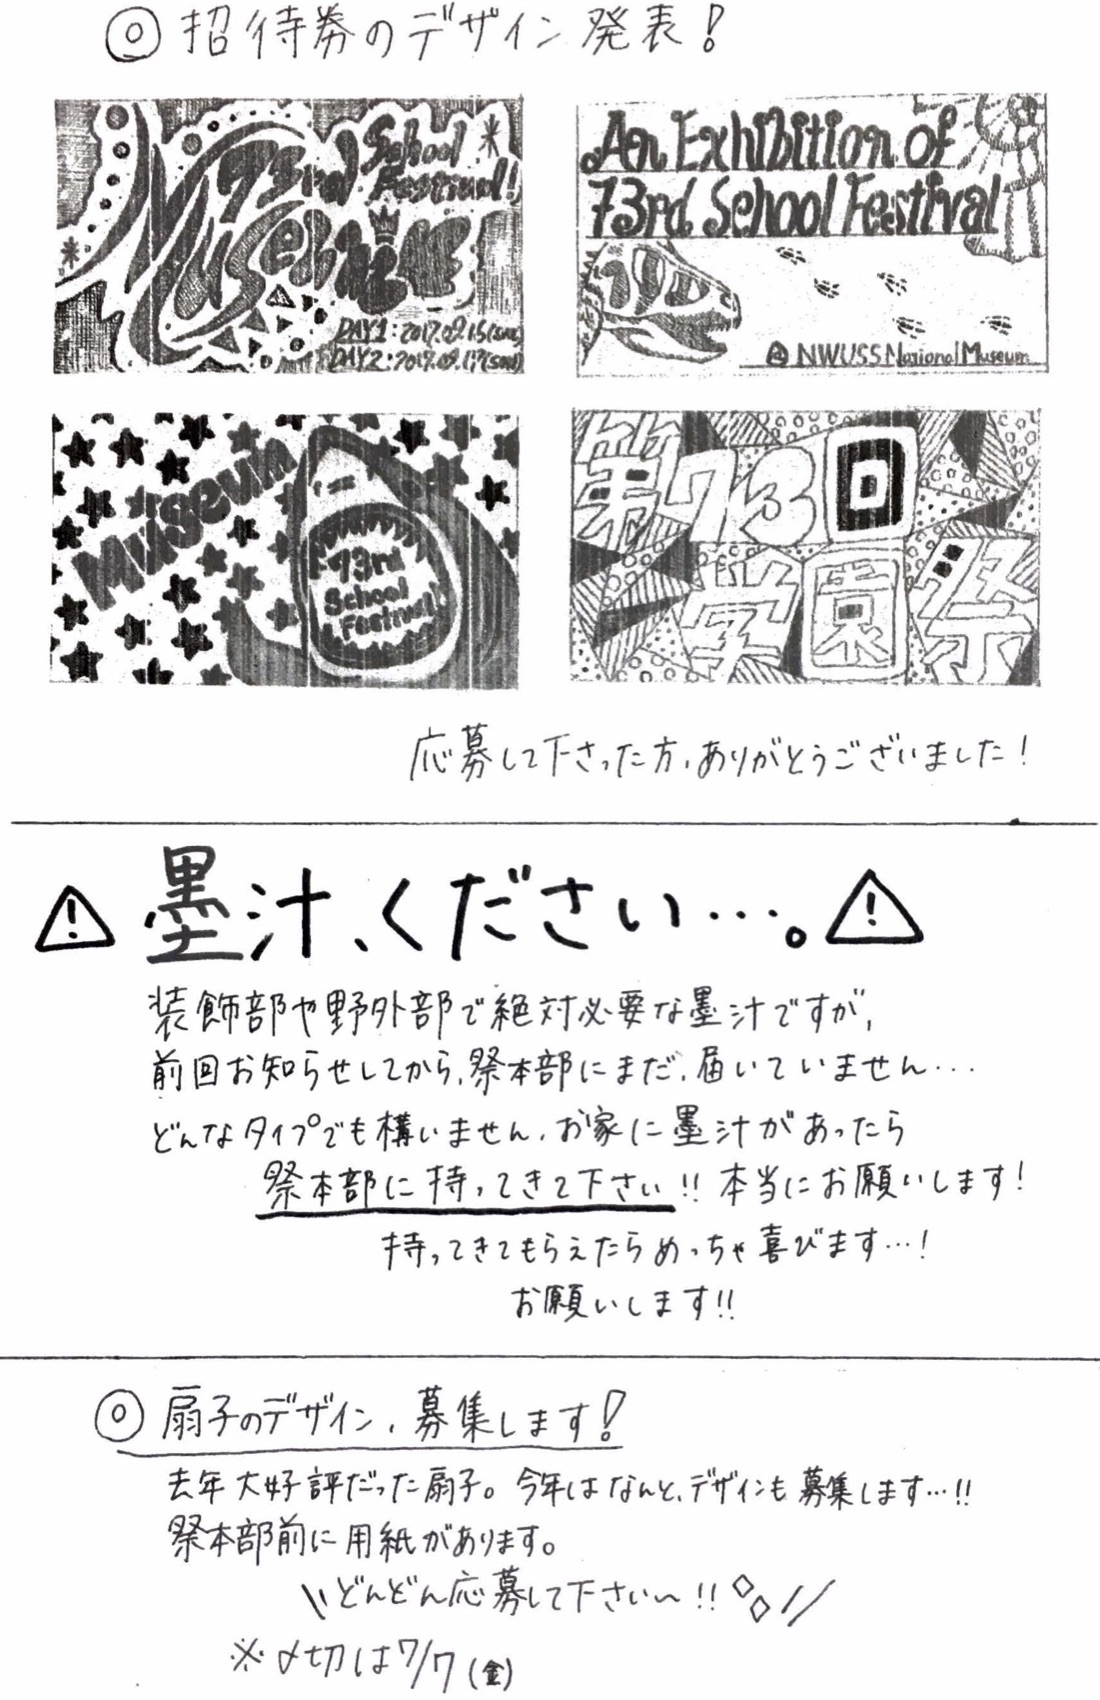 ◎招待券のデザイン発表!
73rd School Festival!
Museum
DAY1: 2017.09.16(sat)
DAY2: 2017.09.17(sun)
An Exhibition of
73rd School Festival
NWUSS National Museum
Museum
73rd
School
Festival
第73回
学園祭
応募して下さった方、ありがとうございました!
⚠墨汁、ください…。⚠
装飾部や野外部で絶対必要な墨汁ですが、
前回お知らせしてから、祭本部にまだ、届いていません…
どんなタイプでも構いません、お家に墨汁があったら
祭本部に持ってきて下さい!! 本当にお願いします!
持ってきてもらえたらめっちゃ喜びます…!
お願いします!!
◎扇子のデザイン、募集します!
去年大好評だった扇子。今年はなんと、デザインも募集します…!!
祭本部前に用紙があります。
\\どんどん応募して下さい〜!!◇◇//
※〆切は7/7(金)